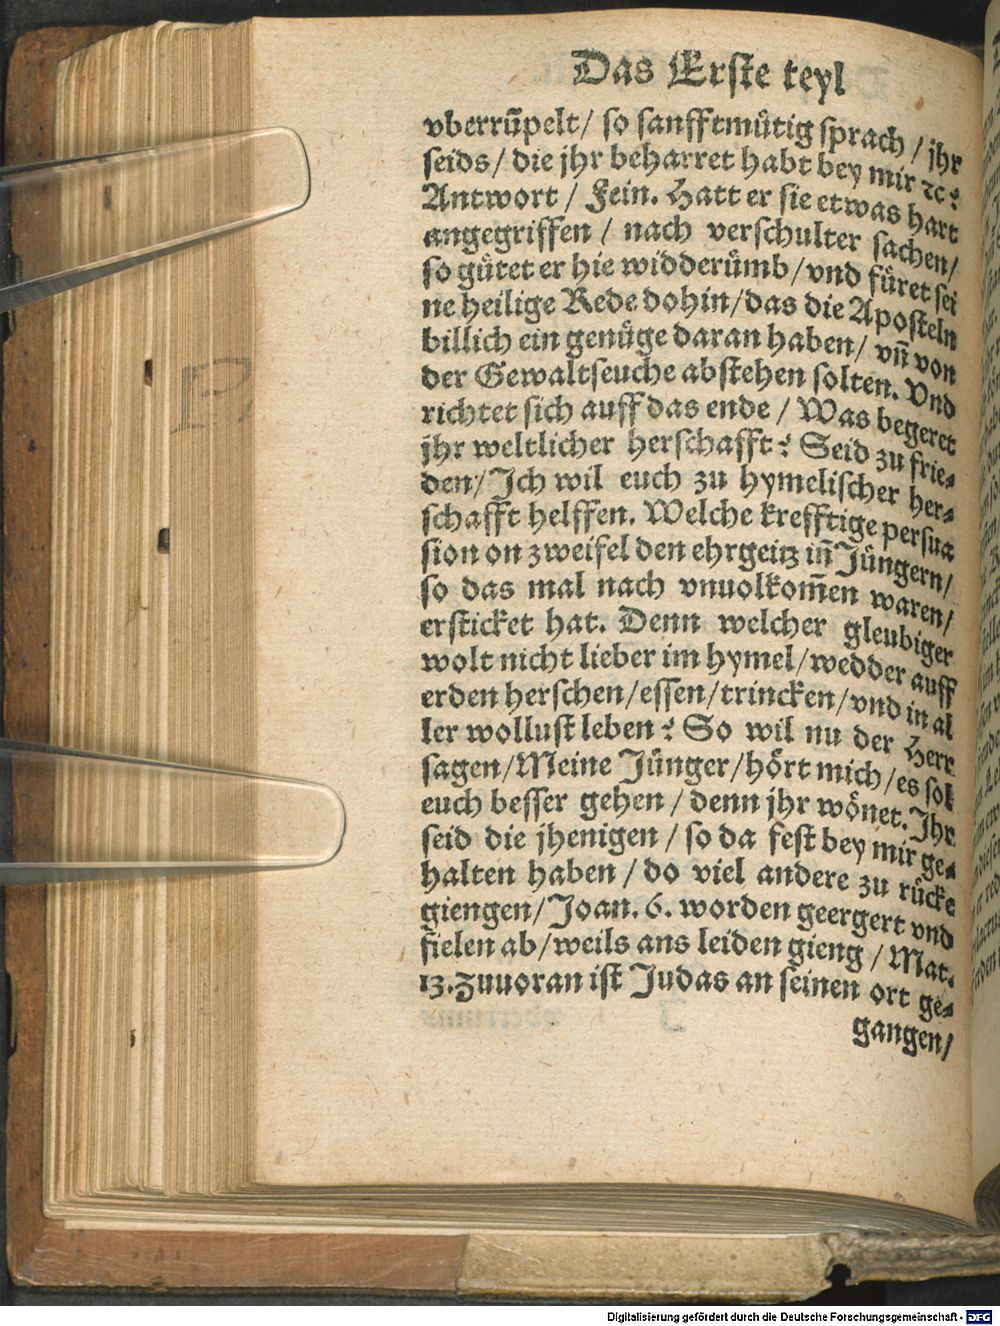 Das Erste teyl
vberrũpelt/ so sanfftmůtig sprach / jhr
seids/ die jhr beharret habt bey mir ꝛc?
Antwort / Fein. Hatt er sie etwas hart
angegriffen / nach verschulter sachen/
so gůtet er hie widderůmb/vnd fůret sei
ne heilige Rede dohin/das die Aposteln
billich ein genůge daran haben/ vñ von
der Gewaltseuche abstehen solten. Vnd
richtet sich auff das ende / Was begeret
jhr weltlicher herschafft? Seid zu frie⸗
den/ Ich wil euch zu hymelischer her⸗
schafft helffen. Welche krefftige persua
sion on zweifel den ehrgeitz iñ Jůngern/
so das mal nach vnuolkom̃en waren/
ersticket hat. Denn welcher gleubiger
wolt nicht lieber im hymel/wedder auff
erden herschen/essen/trincken/vnd in al
ler wollust leben? So wil nu der Herr
sagen/Meine Jůnger/hȯrt mich/es sol
euch besser gehen / denn jhr wȯnet. Jhr
seid die jhenigen / so da fest bey mir ge⸗
halten haben / do viel andere zu růcke
giengen/ Joan. 6. worden geergert vnd
fielen ab/weils ans leiden gieng / Mat.
13. Zuuoran ist Judas an seinen ort ge⸗
gangen/
Digitalisierung gefördert durch die Deutsche Forschungsgemeinschaft - DFG